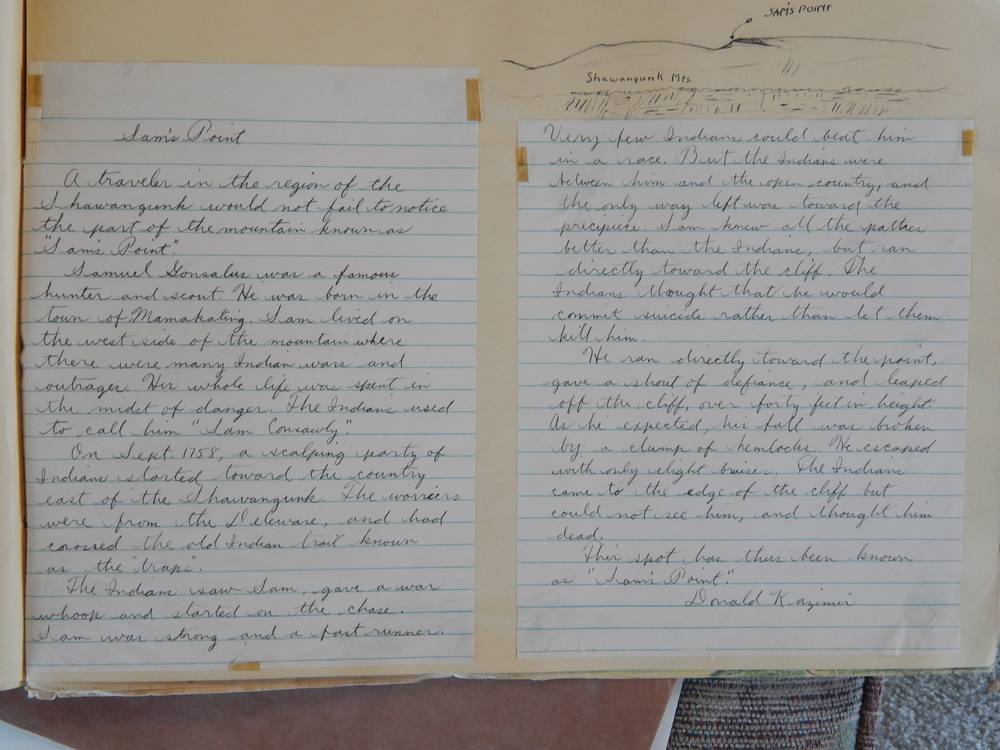 Sam's Point
A traveler in the region of the
Shawangunk would not fail to notice
the part of the mountain known as
"Sam's Point".
Samuel Gonsalus was a famous
hunter and scout. He was born in the
town of Mamakating. Sam lived on
the west side of the mountain where
there were many Indian wars and
outrages. His whole life was spent in
the midst of danger. The Indians used
to call him "Sam Consawly."
On Sept. 1758, a scalping party of
Indians started toward the country
east of the Shawangunk. The worriers
were from the Deleware, and had
crossed the old Indian trail known
as the "traps".
The Indians saw Sam, gave a war
whoop and started on the chase.
Sam was strong and a fast runner.
SAM'S POINT
Shawangunk Mts.
Very few Indians could beat him
in a race. But the Indians were
between him and the open country, and
the only way left was toward the
precipice. Sam knew all the pathes
better than the Indians, but ran
directly toward the cliff. The
Indians thought that he would
commit suicide rather than let them
kill him.
He ran directly toward the point,
gave a shout of defiance, and leaped
off the cliff, over forty feet in height.
As he expected, his fall was broken
by a clump of hemlocks. He escaped
with only slight bruises. The Indians
came to the edge of the cliff but
could not see him, and thought him
dead.
This spot has thus been known
as "Sam's Point."
Donald Kazimir